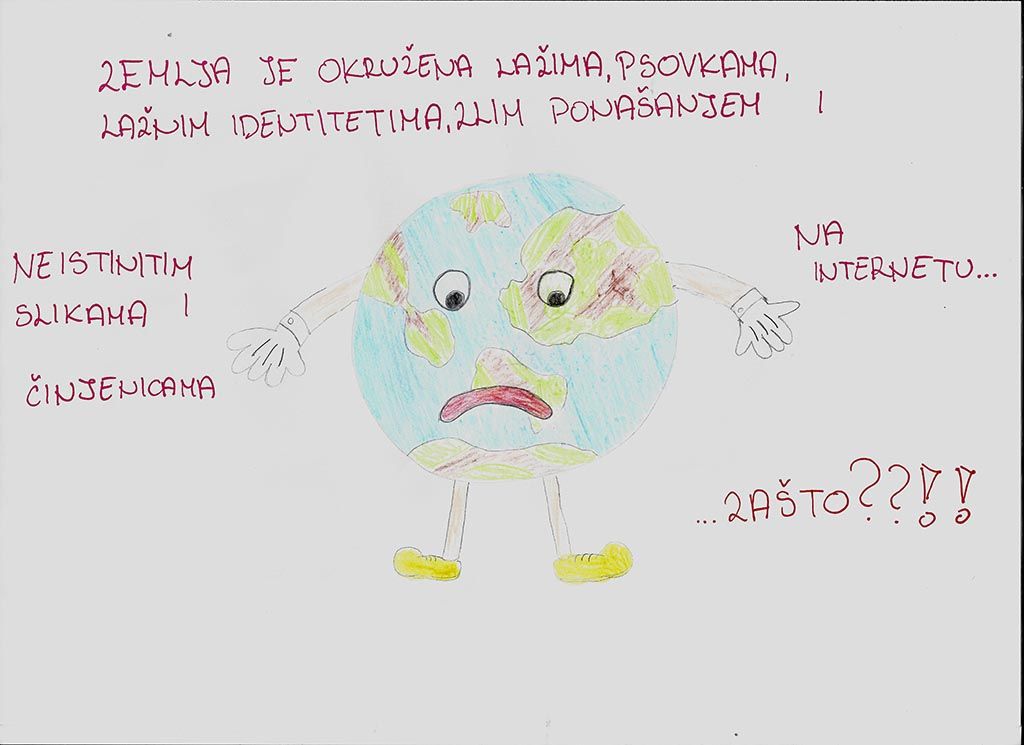 ZEMLJA JE OKRUŽENA LAŽIMA, PSOVKAMA,
LAŽNIM IDENTITETIMA, ZLIM PONAŠANJEM I
NEISTINITIM
SLIKAMA I
ČINJENICAMA
NA
INTERNETU...
...ZAŠTO??!!